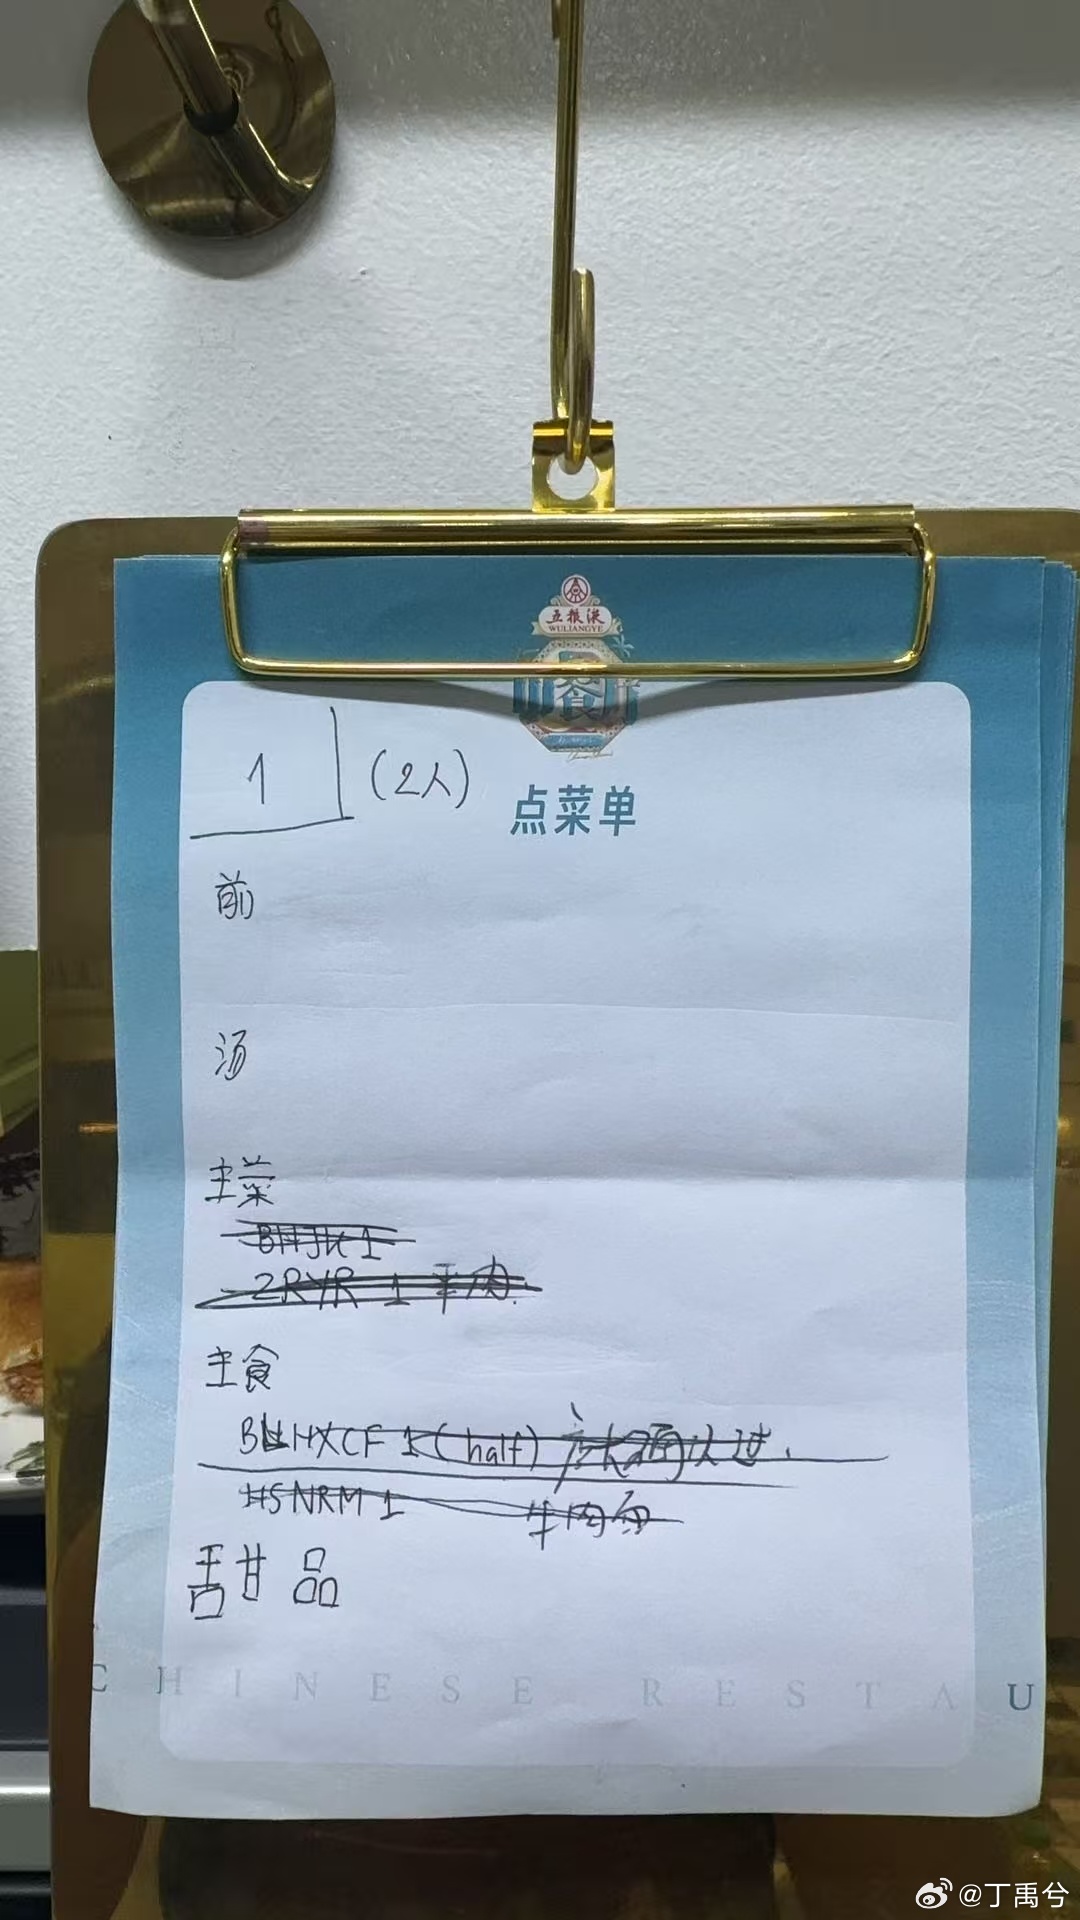 五粮液
WULIANGYE
1 (2人)
点菜单
前
汤
主菜
BHJK 1
ZRYR 1 羊肉.
主食
BLHXCF 1 (half)
HSNRM 1 牛肉面
甜品
CHINESE RESTAU
@丁禹兮